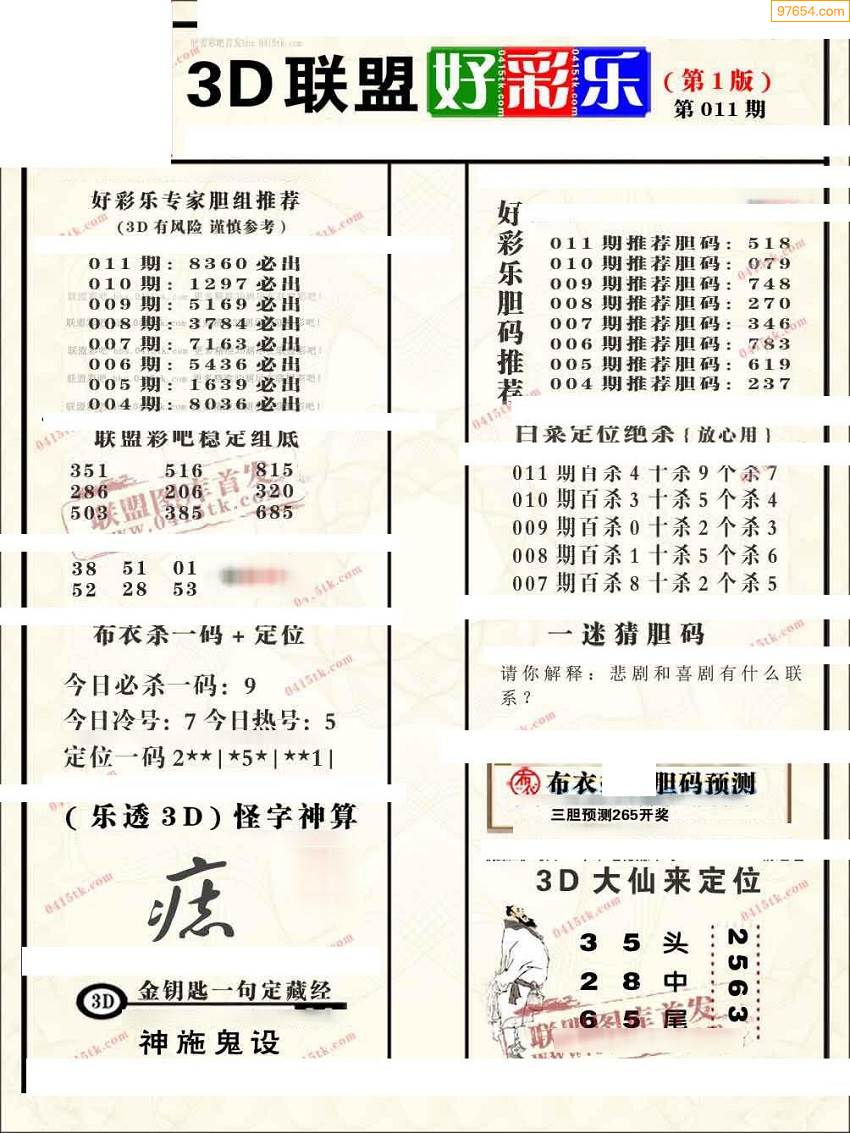 97654.com
3D联盟好彩乐
(第1版)
第011期
好彩乐专家胆组推荐
(3D有风险 谨慎参考)
011期: 8360必出
010期: 1297必出
009期: 5169必出
008期: 3784必出
007期: 7163必出
006期: 5436必出
005期: 1639必出
004期: 8036必出
联盟彩吧稳定组底
351 516 815
286 206 320
503 385 685
联盟图库首发
www.0415tk.com
38 51 01
52 28 53
布衣杀一码+定位
今日必杀一码: 9
今日冷号: 7 今日热号: 5
定位一码2**|*5*|**1|
(乐透3D)怪字神算
痣
3D 金钥匙一句定藏经
神施鬼设
好彩乐胆码推荐
011期推荐胆码: 518
010期推荐胆码: 079
009期推荐胆码: 748
008期推荐胆码: 270
007期推荐胆码: 346
006期推荐胆码: 783
005期推荐胆码: 619
004期推荐胆码: 237
白菜定位绝杀{放心用}
011期百杀4十杀9个杀7
010期百杀3十杀5个杀4
009期百杀0十杀2个杀3
008期百杀1十杀5个杀6
007期百杀8十杀2个杀5
一迷猜胆码
请你解释: 悲剧和喜剧有什么联
系?
布衣 胆码预测
三胆预测265开奖
3D大仙来定位
3 5 头
2 8 中
6 5 尾
2563
联盟图库首发
0415tk.com